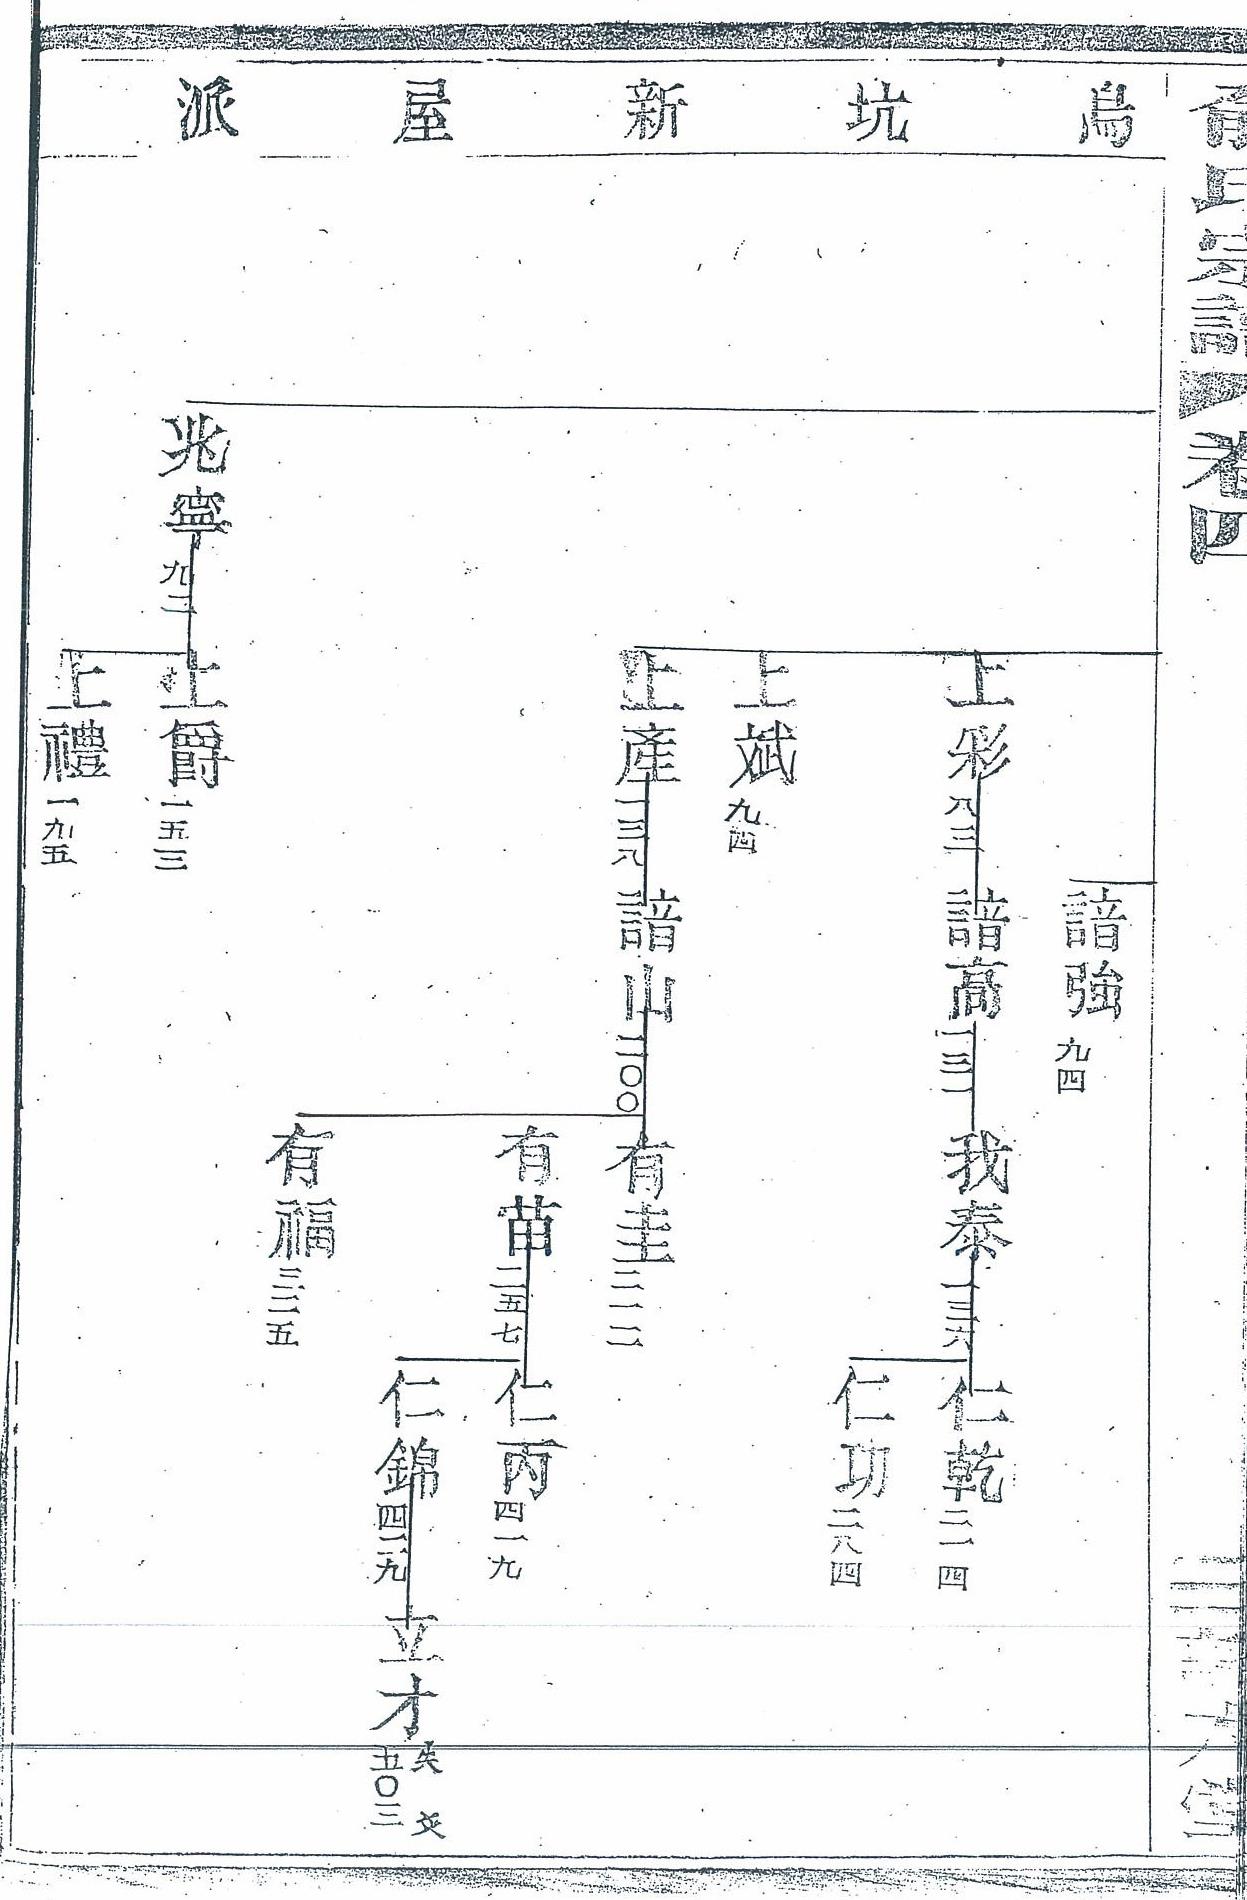 鳥坑新屋派
氏宗譜 卷四
諳強 九四
上彩 八三
諳高 一三一
我泰 一三六
仁乾 三一四
仁功 二八四
上斌 九四
上產 一三八
諳山 二〇〇
有圭 三一二
有苗 二五七
仁丙 四一九
仁錦 四二九
立才 五〇三
有福 三二五
兆寧 九二
上爵 一五三
上禮 一九五